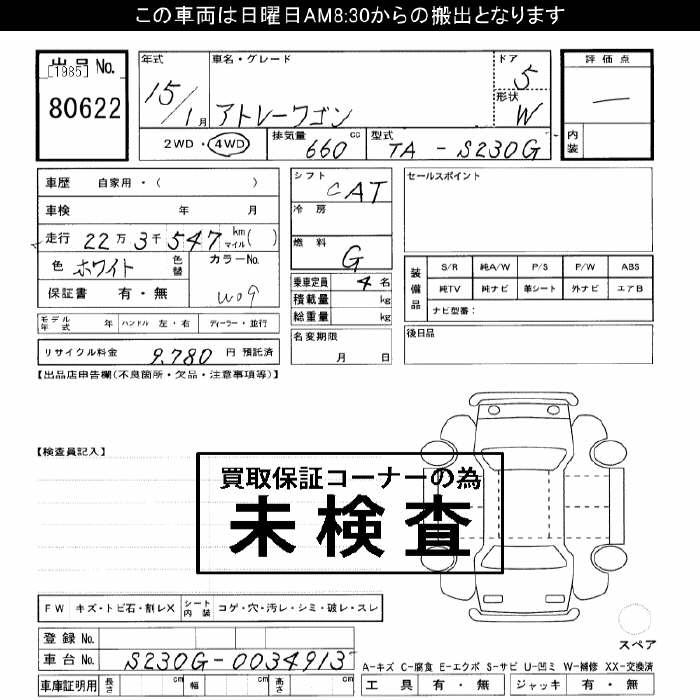 この車両は日曜日AM8:30からの搬出となります
出品No.
[1985]
80622
年式
15/1月
車名・グレード
アトレーワゴン
ドア
5
形状
W
評価点
—
内装
2WD・4WD
排気量
660
cc
型式
TA - S230G
車歴 自家用・( )
車検 年 月
走行 22万3千547 km マイル( )
色 ホワイト
色替
カラーNo.
W09
保証書 有・無
シフト
CAT
冷房
燃料
G
乗車定員 4名
積載量 kg
総重量 kg
セールスポイント
装備品
S/R 純A/W P/S P/W ABS
純TV 純ナビ 革シート 外ナビ エアB
ナビ型番:
モデル年式 年 ハンドル 左・右 ディーラー・並行
リサイクル料金 9,780 円 預託済
名変期限
月 日
後日品
【出品店申告欄(不良箇所・欠品・注意事項等)】
【検査員記入】
買取保証コーナーの為
未検査
FW キズ・トビ石・割レX シート内装 コゲ・穴・汚レ・シミ・破レ・スレ
登録No.
車台No. S230G-0034913
車庫証明用 長さ cm 幅 cm 高さ cm
スペア
A-キズ C-腐食 E-エクボ S-サビ U-凹ミ W-補修 XX-交換済
工具 有・無 ジャッキ 有・無